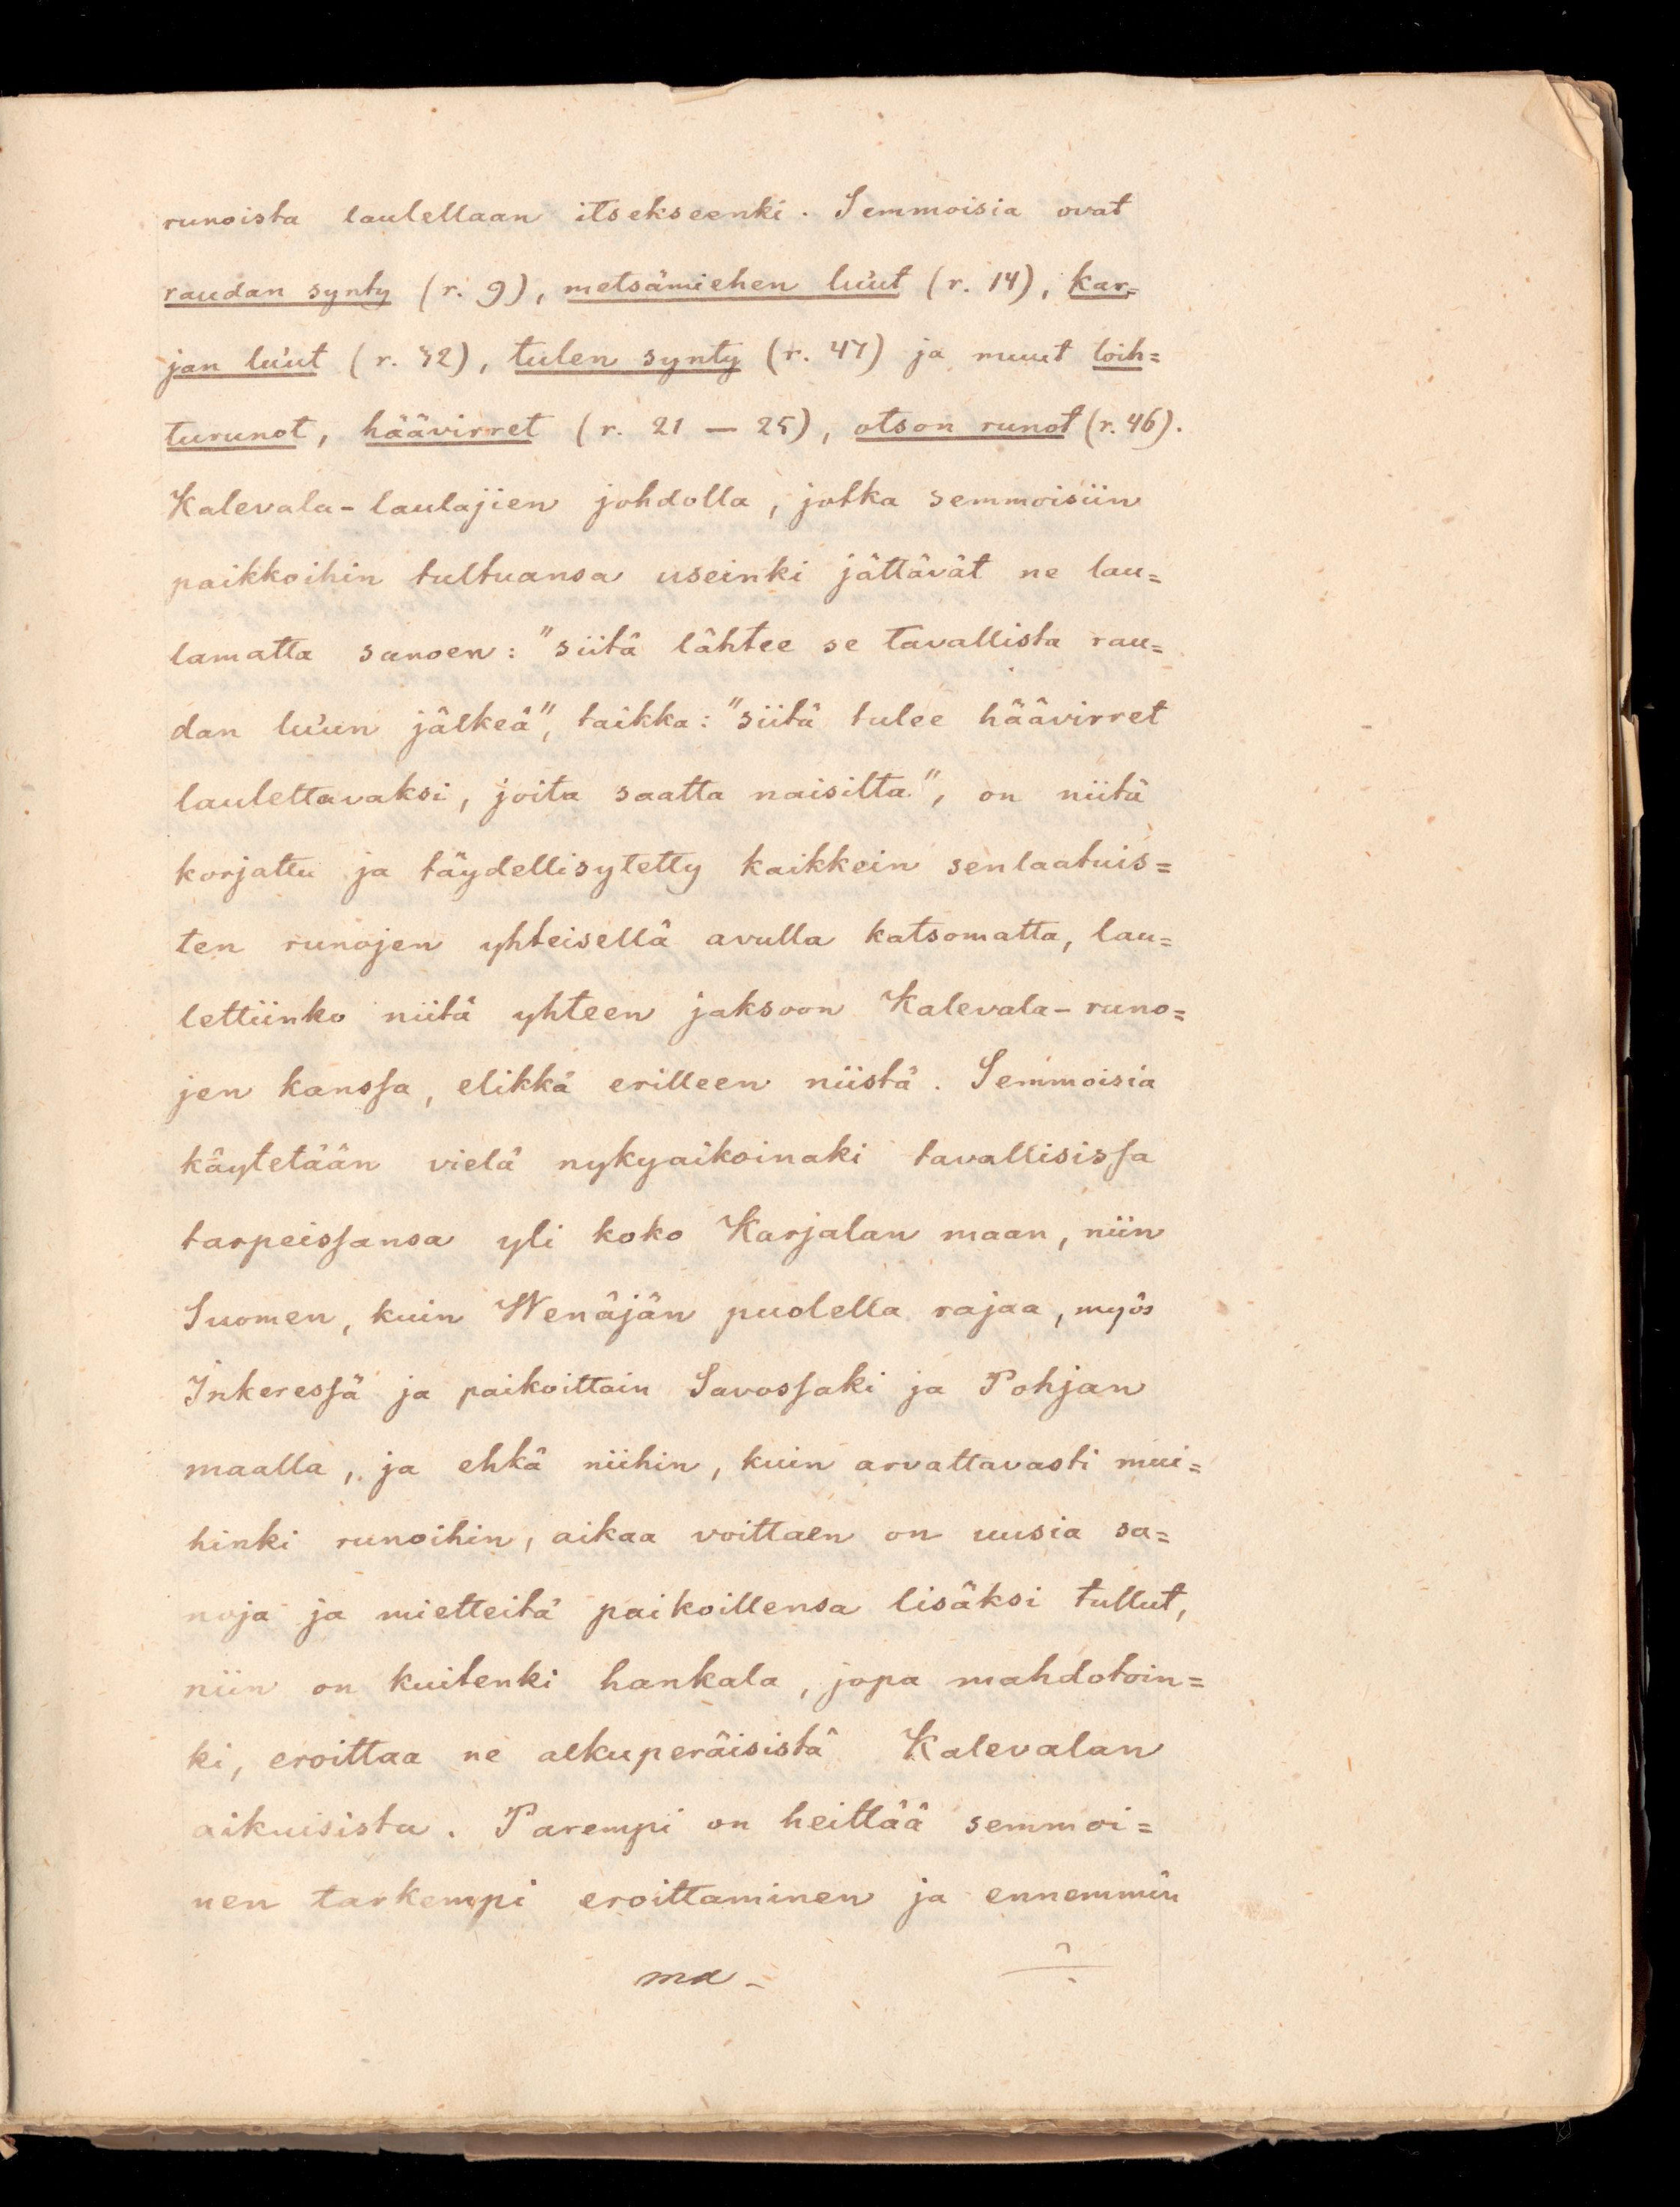 runoista laulellaan itsekseenki. Semmoisia ovat
raudan synty (r. 9), metsämiehen lu'ut (r. 14), kar=
jan lu'ut (r. 32), tulen synty (r. 47) ja muut loih=
turunot, häävirret (r. 21 — 25), otson runot (r. 46).
Kalevala-laulajien johdolla, jotka semmoisiin
paikkoihin tultuansa useinki jättävät ne lau=
lamatta sanoen: "siitä lähtee se tavallista rau=
dan lu'un jälkeä", taikka: "siitä tulee häävirret
laulettavaksi, joita saatta naisilta", on niitä
korjattu ja täydellisytetty kaikkein senlaatuis=
ten runojen yhteisellä avulla katsomatta, lau=
lettiinko niitä yhteen jaksoon Kalevala-runo=
jen kansſa, elikkä erilleen niistä. Semmoisia
käytetään vielä nykyaikoinaki tavallisisſa
tarpeisſansa yli koko Karjalan maan, niin
Suomen, kuin Wenäjän puolella rajaa, myös
Inkeresſä ja paikoittain Savosſaki ja Pohjan
maalla, ja ehkä niihin, kuin arvattavasti mui=
hinki runoihin, aikaa voittaen on uusia sa=
noja ja mietteitä paikoillensa lisäksi tullut,
niin on kuitenki hankala, jopa mahdotoin=
ki, eroittaa ne alkuperäisistä Kalevalan
aikuisista. Parempi on heittää semmoi=
nen tarkempi eroittaminen ja ennemmin
ma-